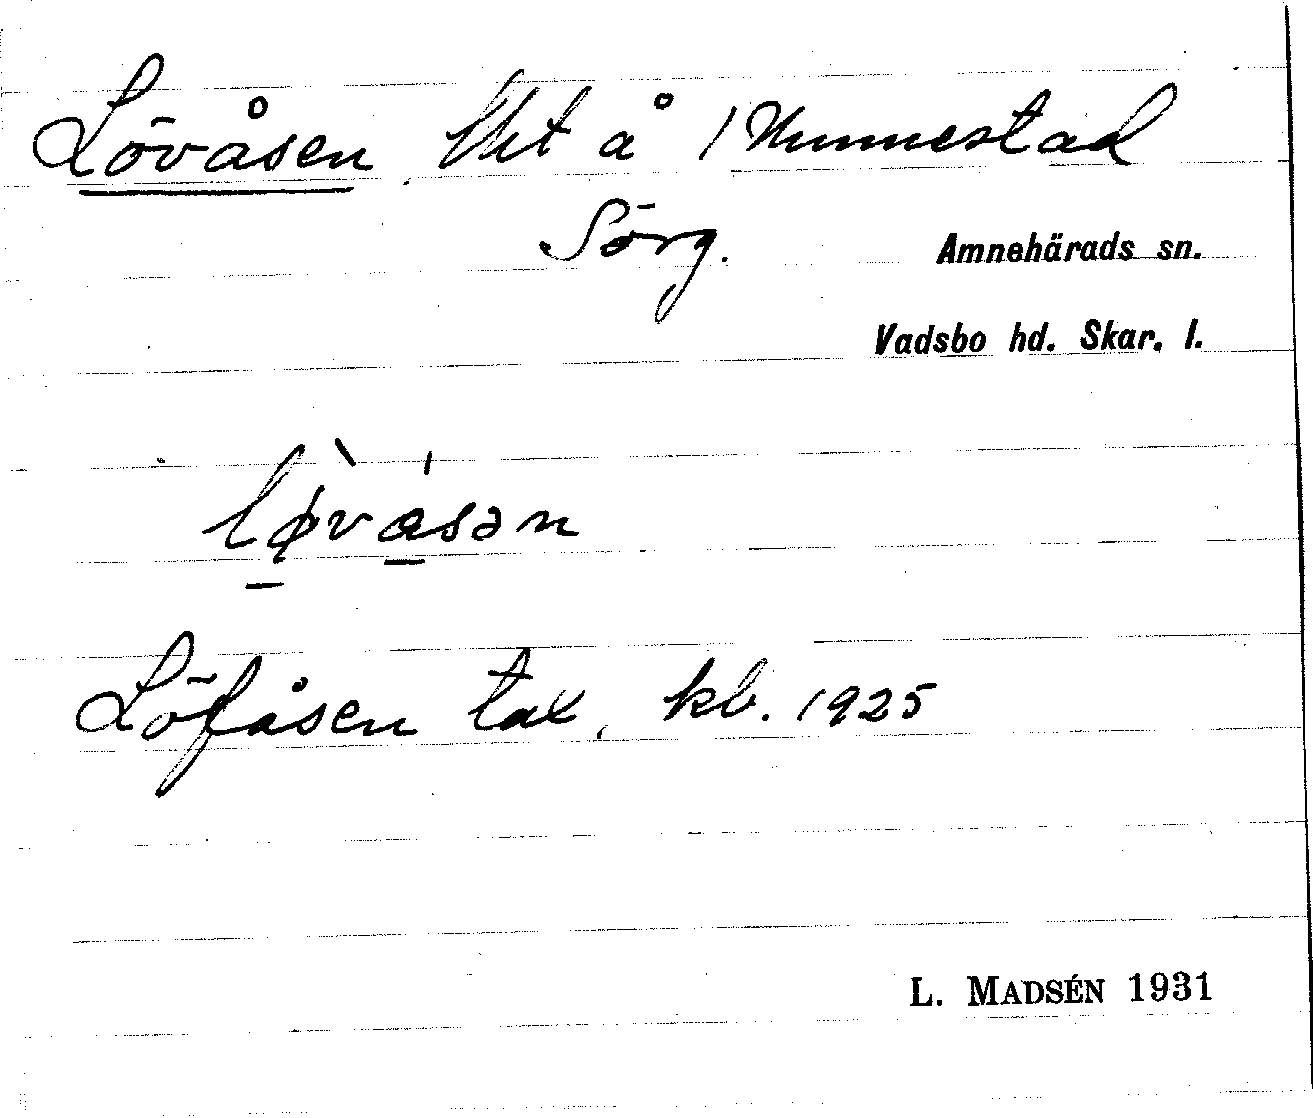 Lövåsen, lht å 1 Nunnestad
Sörg.
Amnehärads sn.
Vadsbo hd. Skar. l.
lø̀vásən
Löfåsen tax, kb. 1925
L. MADSÉN 1931